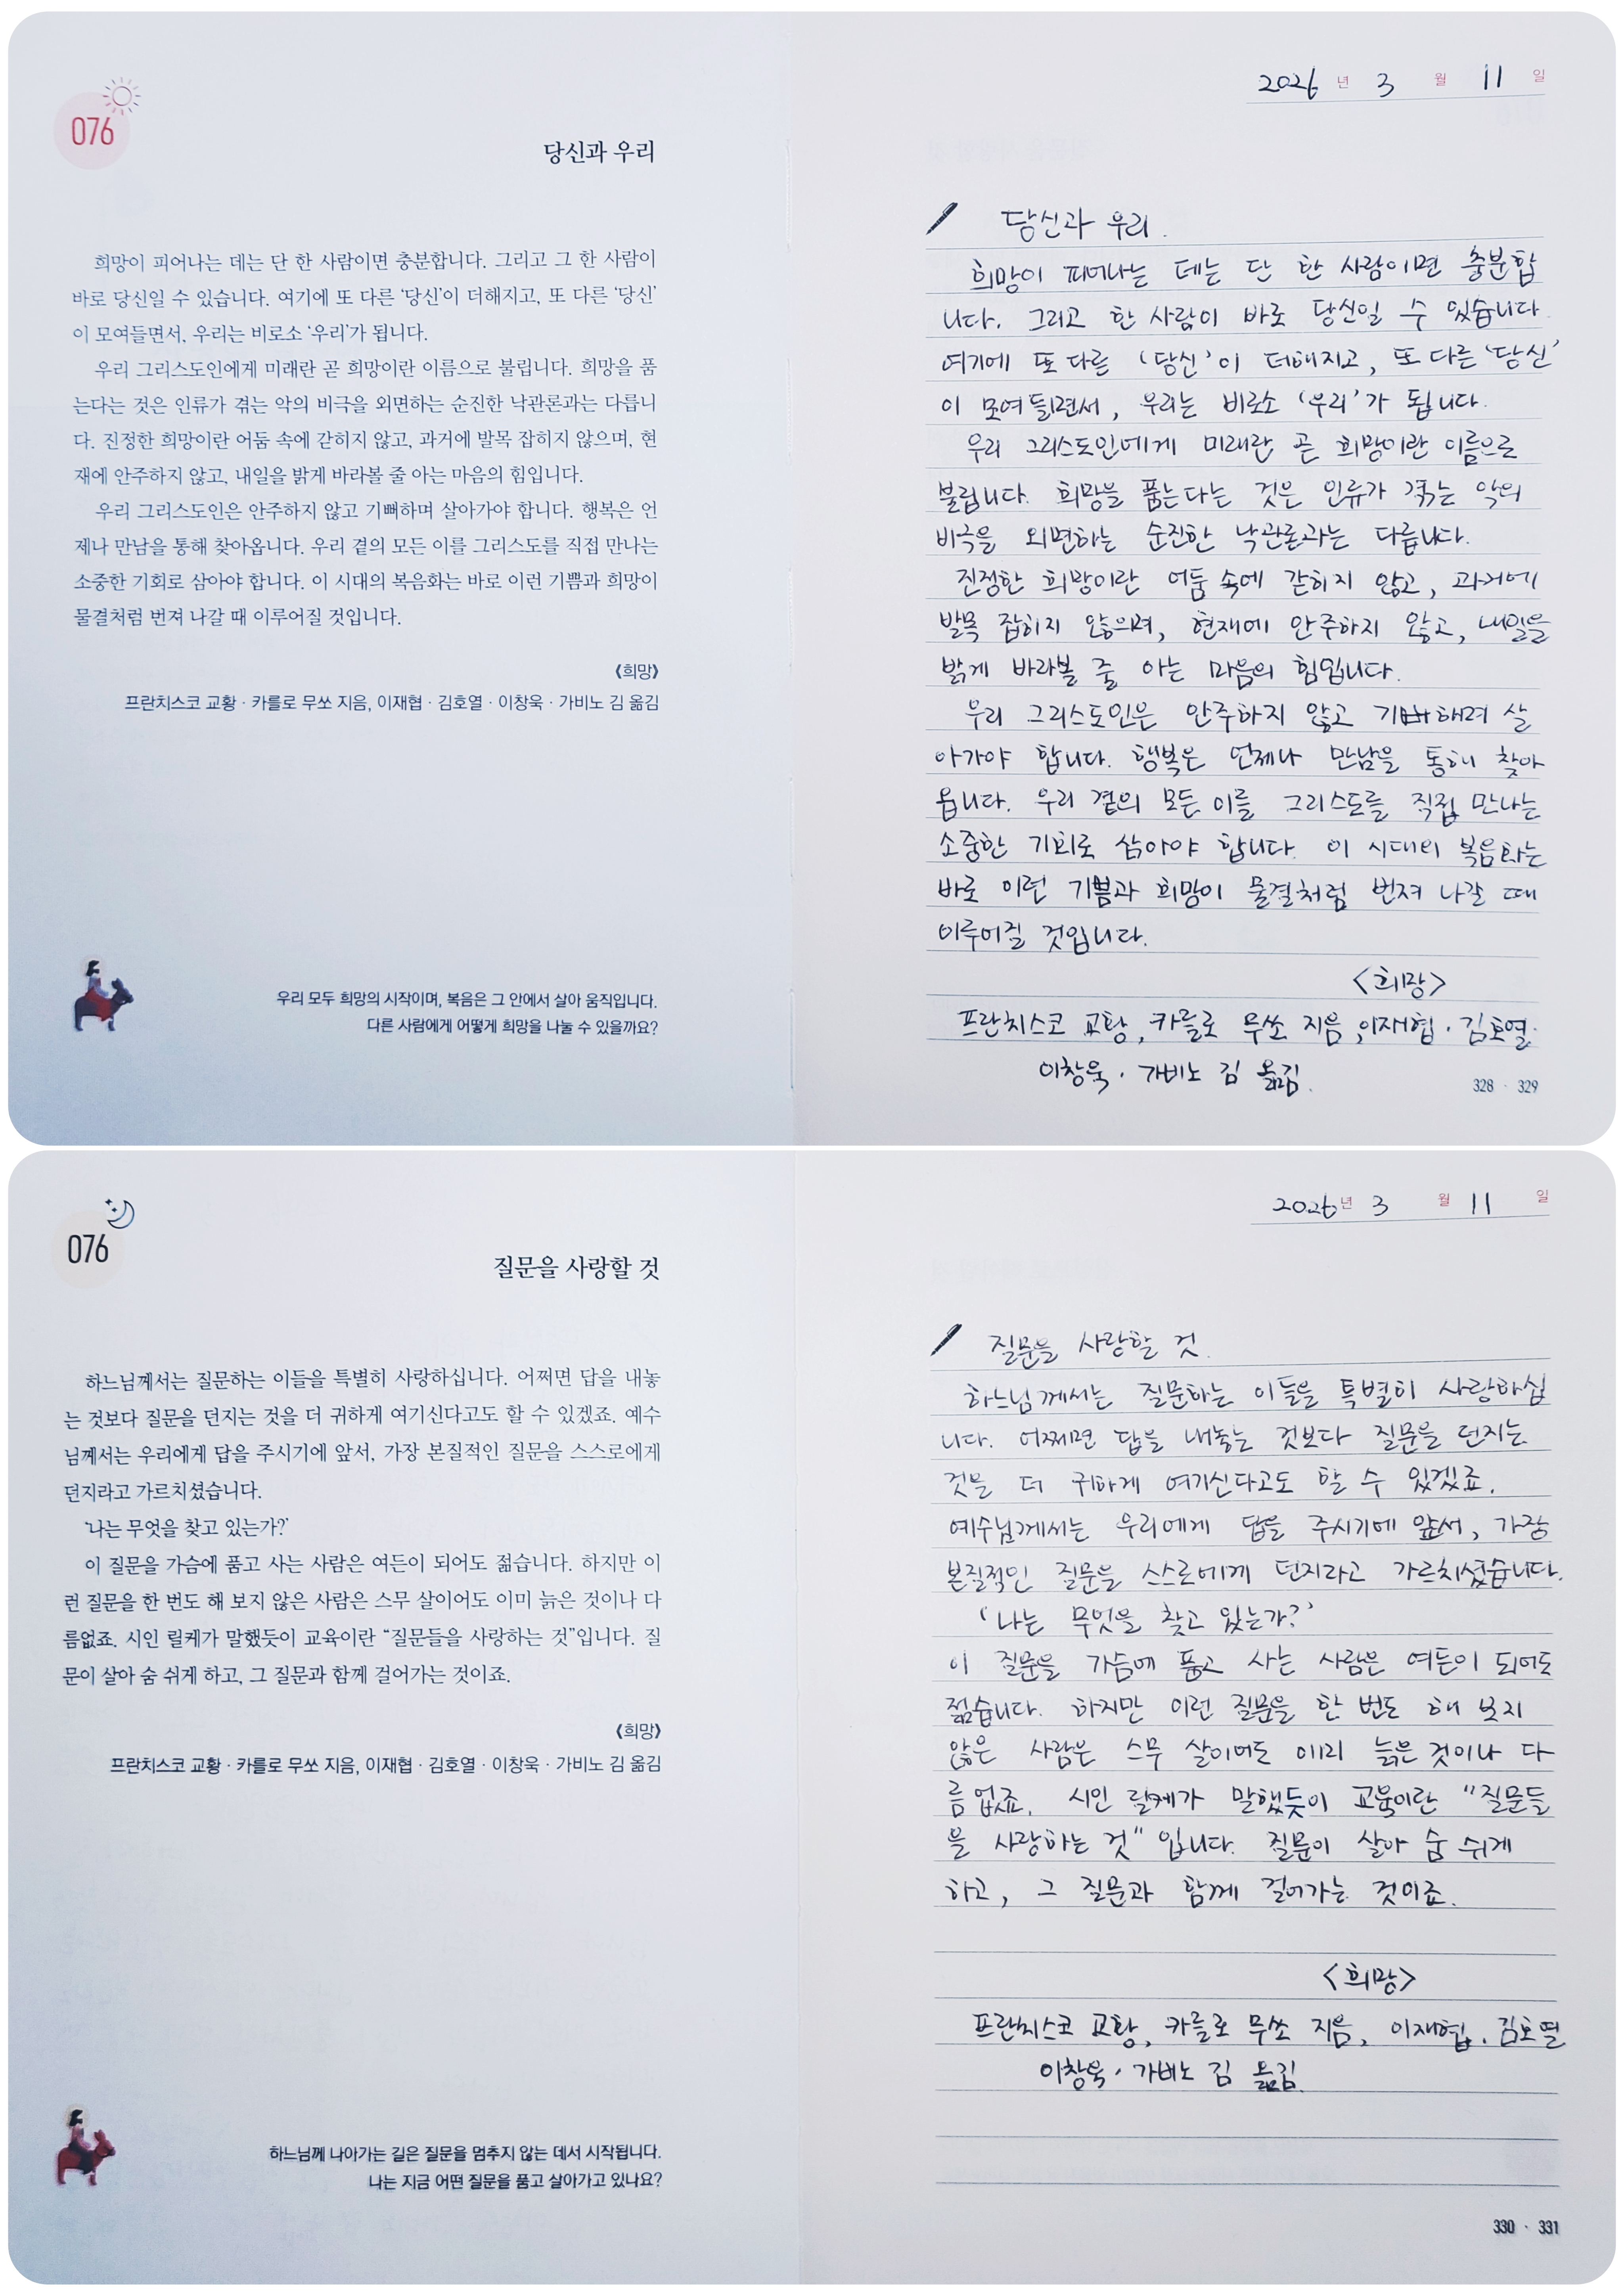 076
당신과 우리
희망이 피어나는 데는 단 한 사람이면 충분합니다. 그리고 그 한 사람이
바로 당신일 수 있습니다. 여기에 또 다른 ‘당신’이 더해지고, 또 다른 ‘당신’
이 모여들면서, 우리는 비로소 ‘우리’가 됩니다.
우리 그리스도인에게 미래란 곧 희망이란 이름으로 불립니다. 희망을 품
는다는 것은 인류가 겪는 악의 비극을 외면하는 순진한 낙관론과는 다릅니
다. 진정한 희망이란 어둠 속에 갇히지 않고, 과거에 발목 잡히지 않으며, 현
재에 안주하지 않고, 내일을 밝게 바라볼 줄 아는 마음의 힘입니다.
우리 그리스도인은 안주하지 않고 기뻐하며 살아가야 합니다. 행복은 언
제나 만남을 통해 찾아옵니다. 우리 곁의 모든 이를 그리스도를 직접 만나는
소중한 기회로 삼아야 합니다. 이 시대의 복음화는 바로 이런 기쁨과 희망이
물결처럼 번져 나갈 때 이루어질 것입니다.
《희망》
프란치스코 교황 · 카를로 무쏘 지음, 이재협 · 김호열 · 이창욱 · 가비노 김 옮김
우리 모두 희망의 시작이며, 복음은 그 안에서 살아 움직입니다.
다른 사람에게 어떻게 희망을 나눌 수 있을까요?
2026 년 3 월 11 일
당신과 우리.
희망이 피어나는 데는 단 한 사람이면 충분합
니다. 그리고 한 사람이 바로 당신일 수 있습니다.
여기에 또 다른 ‘당신’이 더해지고, 또 다른 ‘당신’
이 모여들면서, 우리는 비로소 ‘우리’가 됩니다.
우리 그리스도인에게 미래란 곧 희망이란 이름으로
불립니다. 희망을 품는다는 것은 인류가 겪는 악의
비극을 외면하는 순진한 낙관론과는 다릅니다.
진정한 희망이란 어둠 속에 갇히지 않고, 과거에
발목 잡히지 않으며, 현재에 안주하지 않고, 내일을
밝게 바라볼 줄 아는 마음의 힘입니다.
우리 그리스도인은 안주하지 않고 기뻐하며 살
아가야 합니다. 행복은 언제나 만남을 통해 찾아
옵니다. 우리 곁의 모든 이를 그리스도를 직접 만나는
소중한 기회로 삼아야 합니다. 이 시대의 복음화는
바로 이런 기쁨과 희망이 물결처럼 번져 나갈 때
이루어질 것입니다.
<희망>
프란치스코 교황, 카를로 무쏘 지음, 이재협 · 김호열·
이창욱 · 가비노 김 옮김.
328 · 329
076
질문을 사랑할 것
하느님께서는 질문하는 이들을 특별히 사랑하십니다. 어쩌면 답을 내놓
는 것보다 질문을 던지는 것을 더 귀하게 여기신다고도 할 수 있겠죠. 예수
님께서는 우리에게 답을 주시기에 앞서, 가장 본질적인 질문을 스스로에게
던지라고 가르치셨습니다.
‘나는 무엇을 찾고 있는가?’
이 질문을 가슴에 품고 사는 사람은 여든이 되어도 젊습니다. 하지만 이
런 질문을 한 번도 해 보지 않은 사람은 스무 살이어도 이미 늙은 것이나 다
름없죠. 시인 릴케가 말했듯이 교육이란 “질문들을 사랑하는 것”입니다. 질
문이 살아 숨 쉬게 하고, 그 질문과 함께 걸어가는 것이죠.
《희망》
프란치스코 교황 · 카를로 무쏘 지음, 이재협 · 김호열 · 이창욱 · 가비노 김 옮김
하느님께 나아가는 길은 질문을 멈추지 않는 데서 시작됩니다.
나는 지금 어떤 질문을 품고 살아가고 있나요?
2026 년 3 월 11 일
질문을 사랑할 것.
하느님께서는 질문하는 이들을 특별히 사랑하십
니다. 어쩌면 답을 내놓는 것보다 질문을 던지는
것을 더 귀하게 여기신다고도 할 수 있겠죠.
예수님께서는 우리에게 답을 주시기에 앞서, 가장
본질적인 질문을 스스로에게 던지라고 가르치셨습니다.
‘나는 무엇을 찾고 있는가?’
이 질문을 가슴에 품고 사는 사람은 여든이 되어도
젊습니다. 하지만 이런 질문을 한 번도 해 보지
않은 사람은 스무 살이어도 이미 늙은 것이나 다
름없죠. 시인 릴케가 말했듯이 교육이란 “질문들
을 사랑하는 것” 입니다. 질문이 살아 숨 쉬게
하고, 그 질문과 함께 걸어가는 것이죠.
<희망>
프란치스코 교황, 카를로 무쏘 지음, 이재협 · 김호열
이창욱 · 가비노 김 옮김.
330 · 331